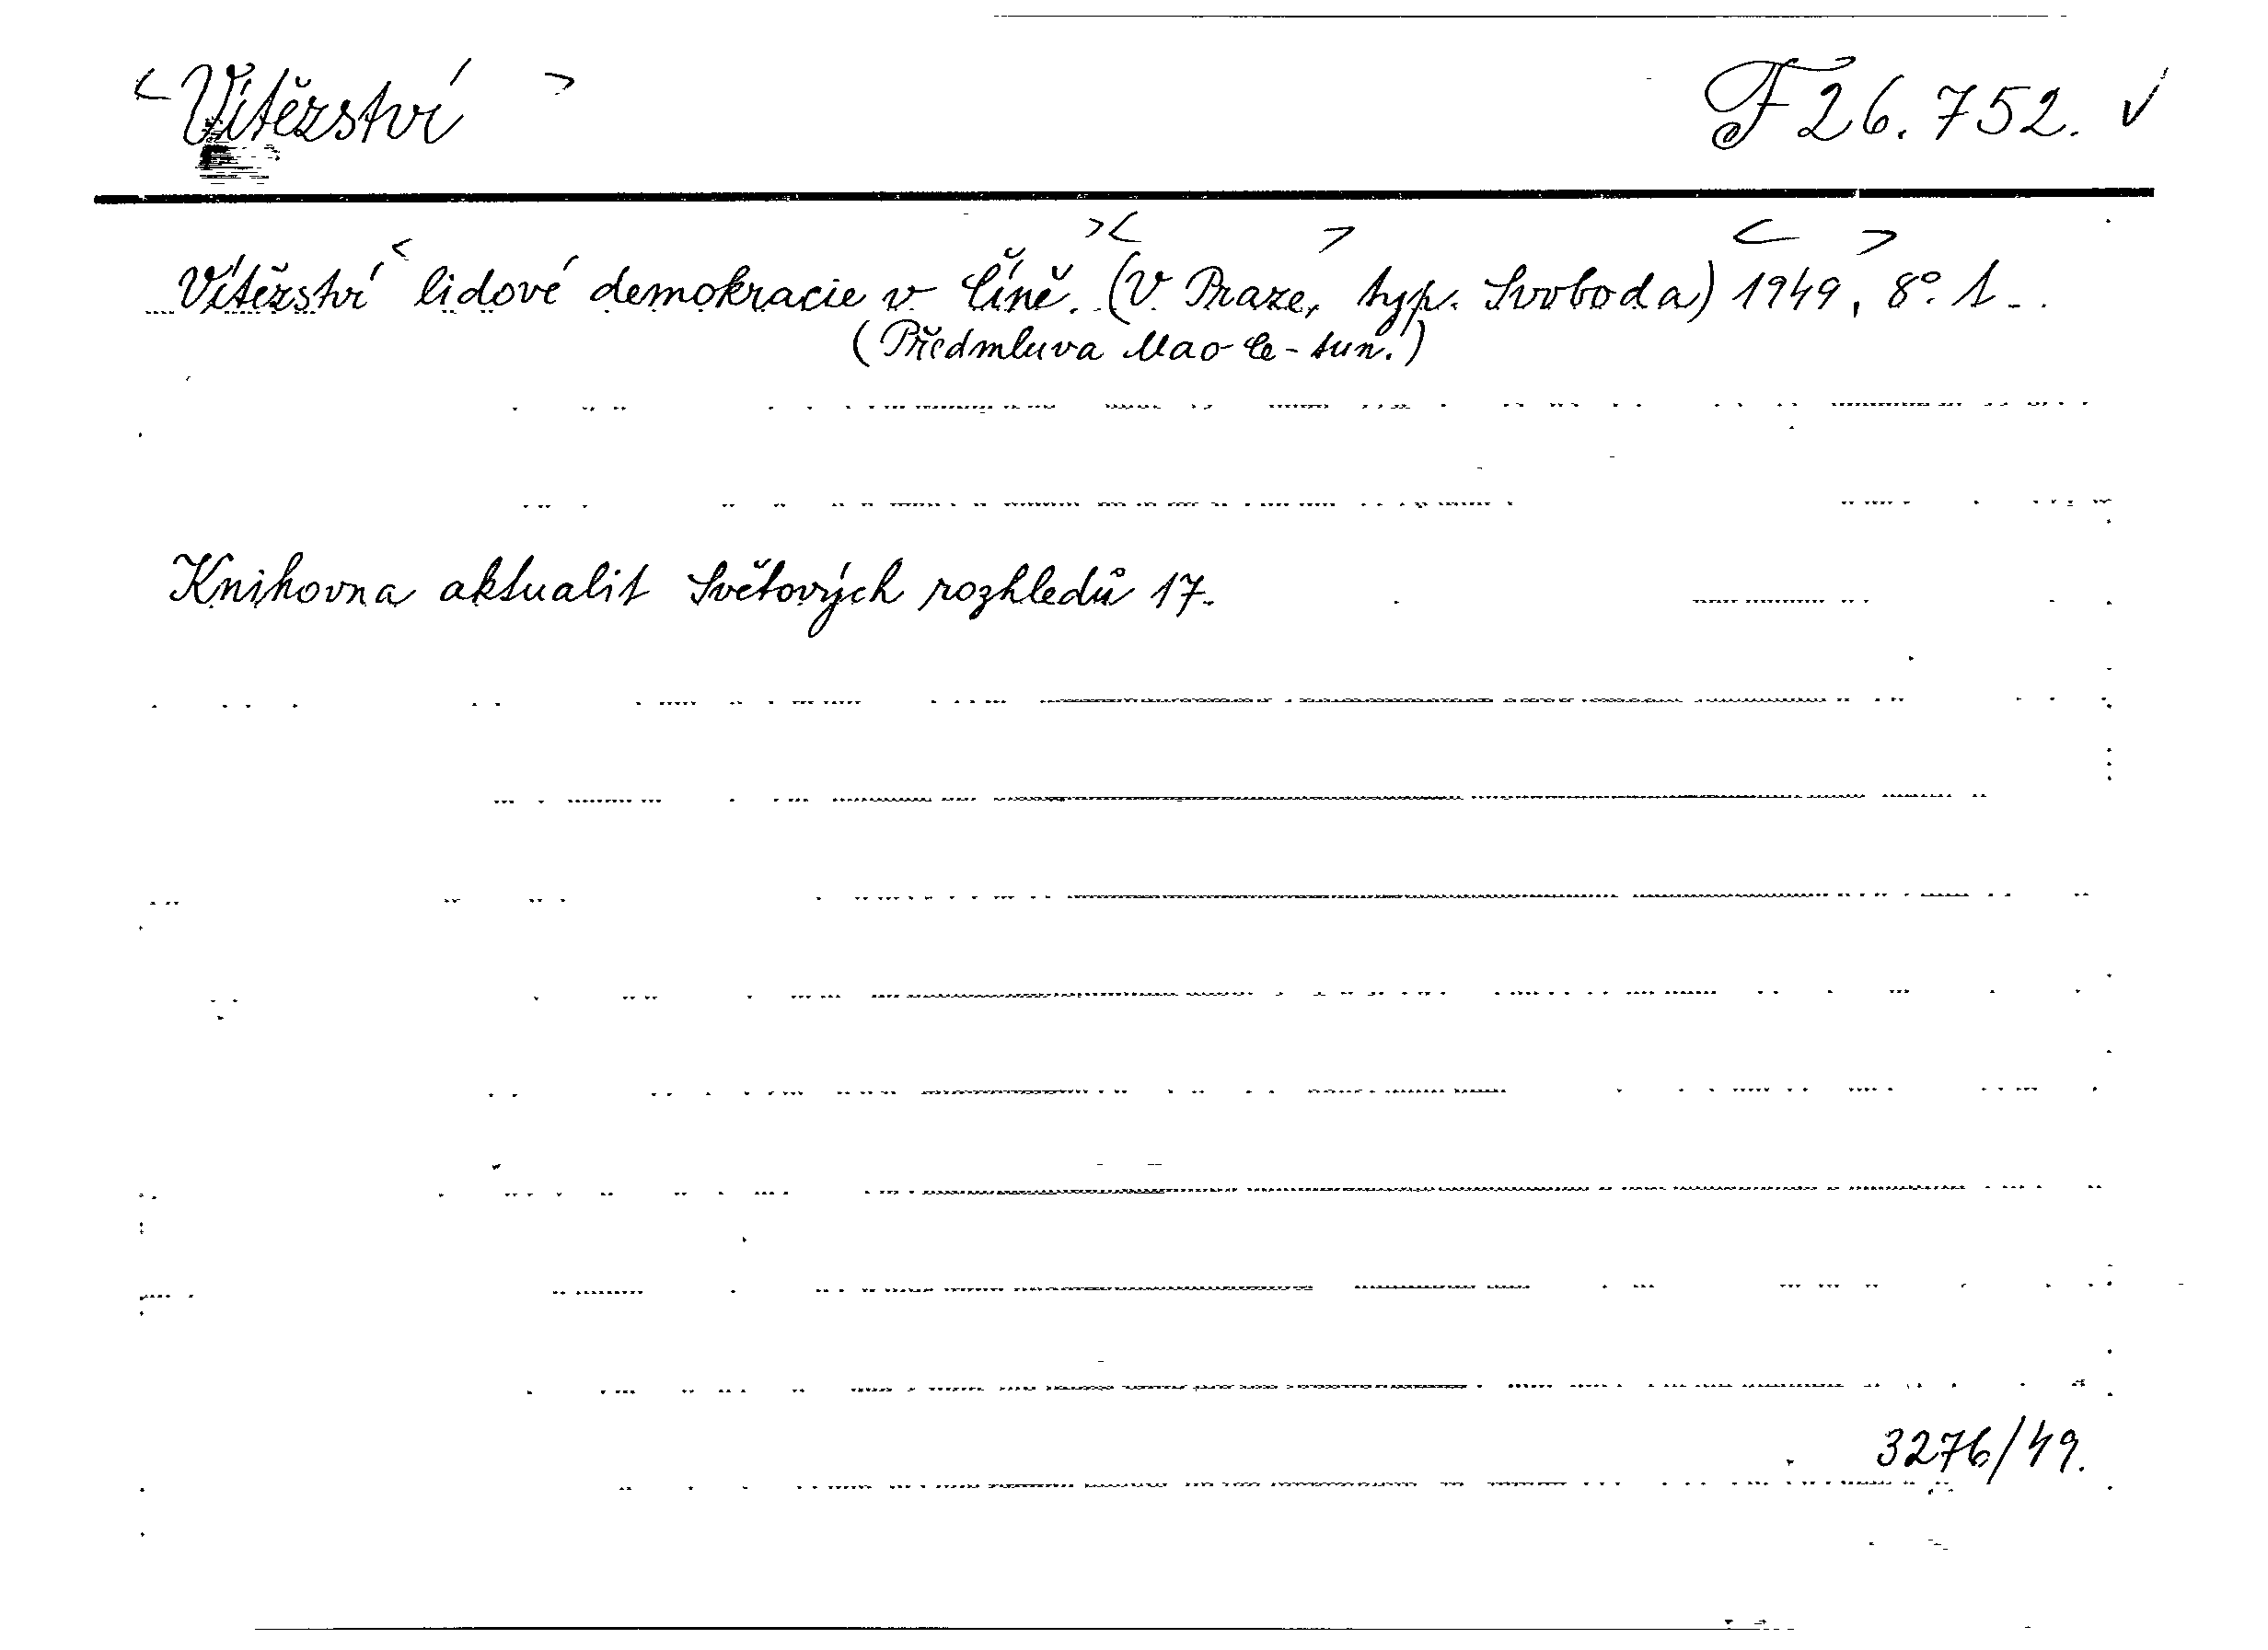 < Vítězství > F 26.752. ✓
Vítězství < lidové demokracie v Číně. >< (V Praze, > typ. Svoboda) < 1949, > 8°. 1 -.
(Předmluva Mao Ce-tun.)
Knihovna aktualit Světových rozhledů 17.
3276/49.